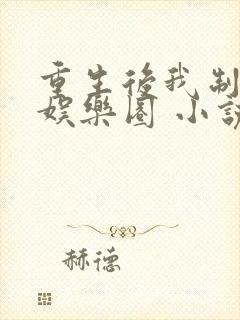 重生後我制
娛樂圈 小說
赫德